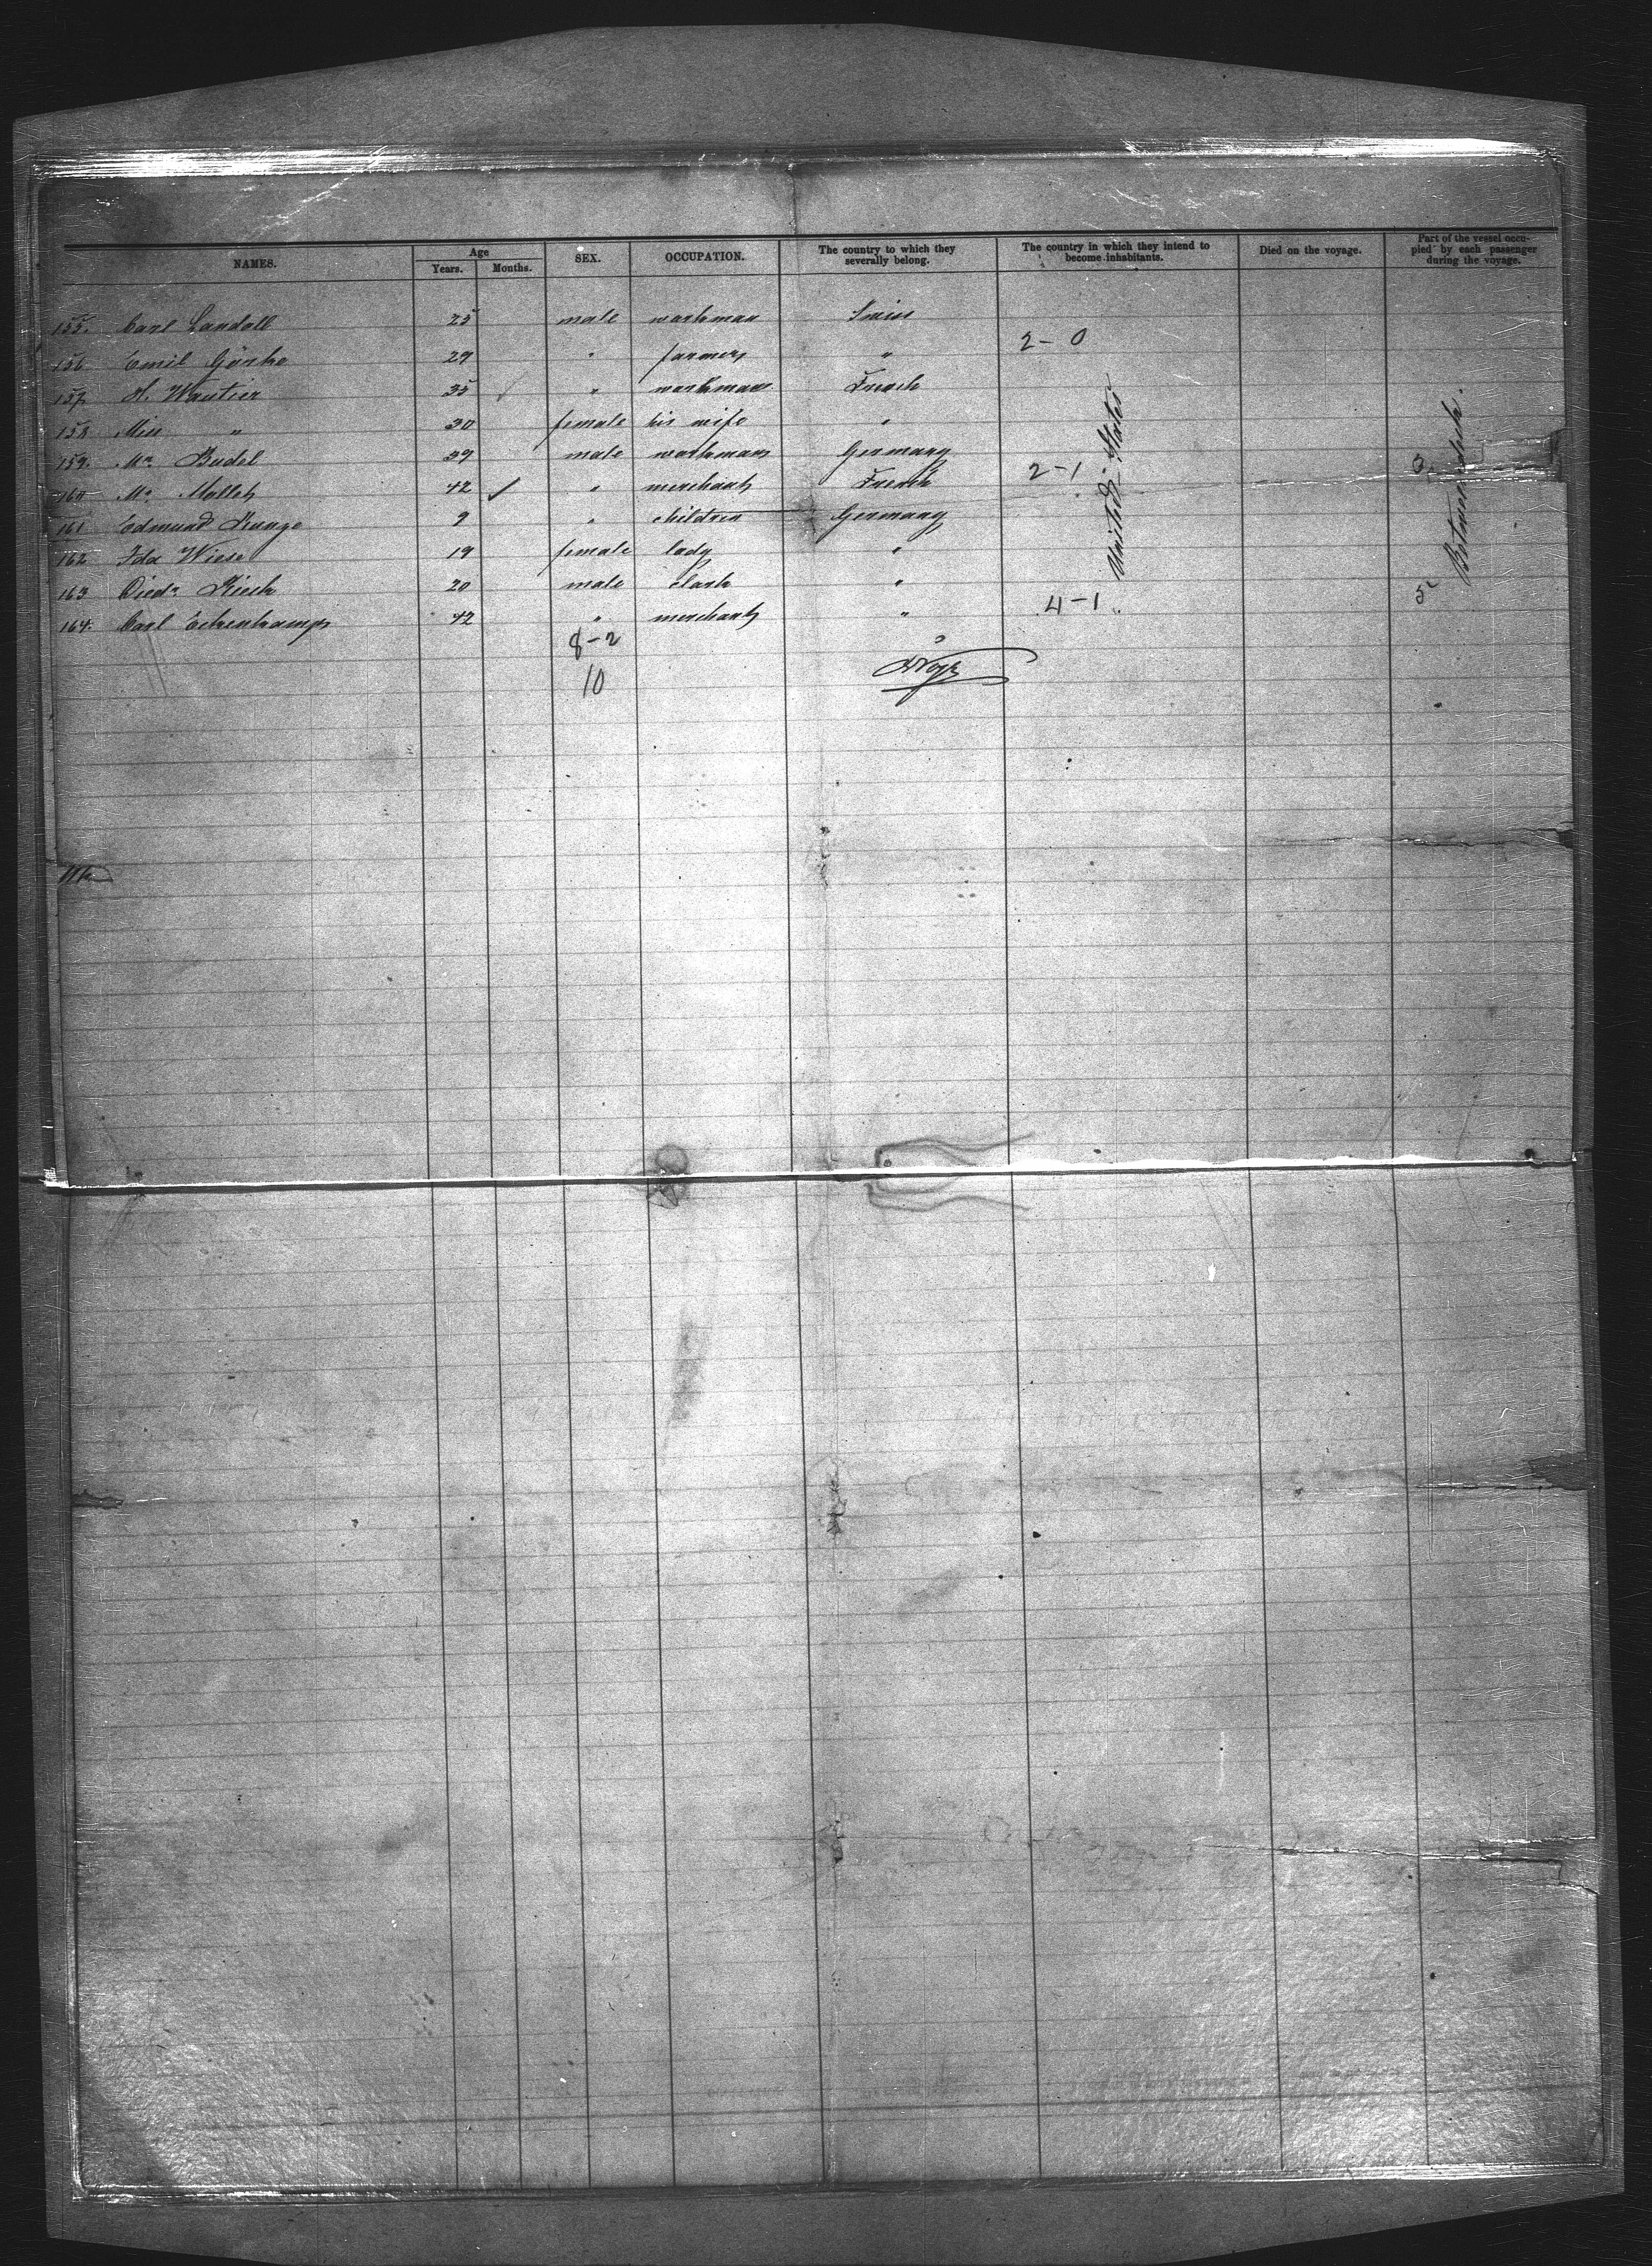 NAMES. Age Years. Months. SEX. OCCUPATION. The country to which they severally belong. The country in which they intend to become inhabitants. Died on the voyage. Part of the vessel occupied by each passenger during the voyage.
155. Carl Landolt 25 male workman Swiss
156. Emil Görke 29 " farmer "
2-0
157. H. Wautier 35 " workman French
158. Miss " 30 female his wife "
159. Mr. Budel 39 male workman Germany
2-1
160 Mr. 42 ✓ " merchant French
161 Edmund 9 " children Germany
162 Ida Wiese 19 female lady "
163 Diedr. 20 male clark "
164. Carl Eckenkamp 42 " merchant "
4-1
5
United-States
Betweendeck.
8-2
10